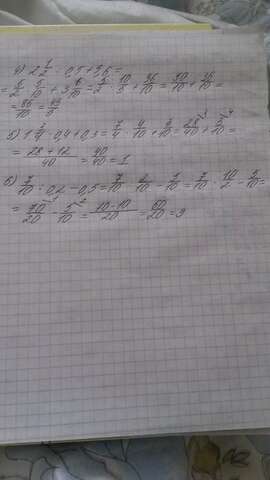 4) 2 1/2 : 0,5 + 3,6 =
= 5/2 : 5/10 + 3 6/10 = 5/2 · 10/5 + 36/10 = 50/10 + 36/10 =
= 86/10 = 43/5
5) 1 3/4 · 0,4 + 0,3 = 7/4 · 4/10 + 3/10 = 28/40 + 3/10 =
= 28 + 12/40 = 40/40 = 1
6) 7/10 : 0,2 - 0,5 = 7/10 : 2/10 - 5/10 = 7/10 · 10/2 - 5/10 =
= 70/20 - 5/10 = 70-10/20 = 60/20 =